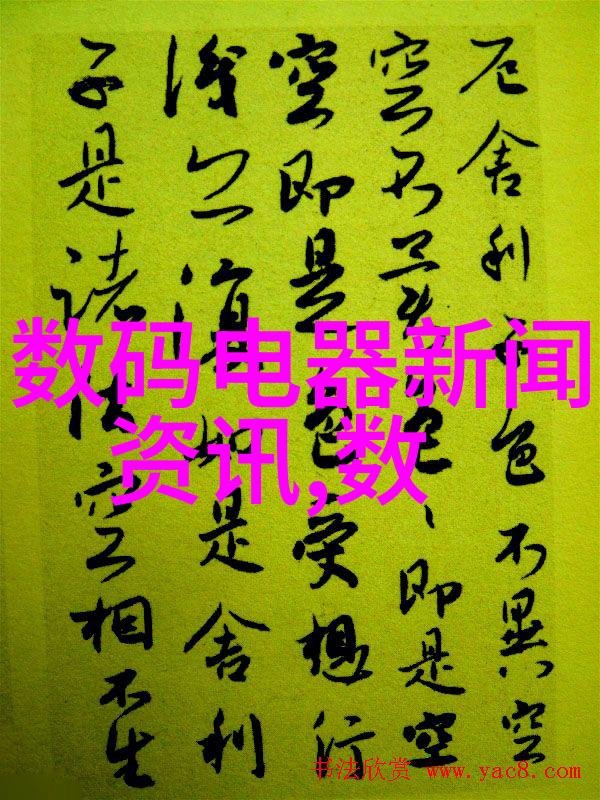 厄舍利子色不異空
空不異色、即是空
空即是色受想行
識亦復如是舍利
子是諸法空相不生
数码电器新闻
资讯,数
书法欣赏 www.yac8.com